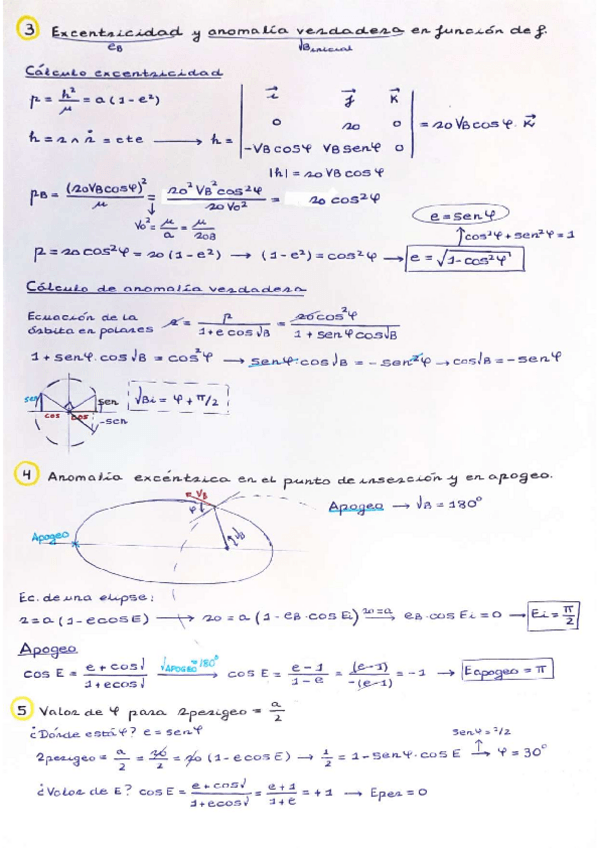 3 Excentricidad y anomalía verdadera en función de φ.
e_B √B inicial
Cálculo excentricidad
p = h²/μ = a(1-e²)
h = r ∧ ṙ = cte → h = | i⃗ j⃗ k⃗ |
| 0 r0 0 | = r0 VB cos φ · k⃗
| -VB cos φ VB sen φ 0 |
|h| = r0 VB cos φ
pB = (r0 VB cos φ)²/μ = r0² VB² cos²φ / r0 V0² = r0 cos²φ
V0² = μ/a = μ/r0B
e = sen φ
cos²φ + sen²φ = 1
p = r0 cos²φ = r0 (1-e²) → (1-e²) = cos²φ → e = √(1-cos²φ)
Cálculo de anomalía verdadera
Ecuación de la
órbita en polares r = p/(1+e cos √B) = r0 cos²φ/(1+sen φ cos √B)
1 + sen φ · cos √B = cos²φ → sen φ · cos √B = - sen²φ → cos √B = - sen φ
sen sen √Bi = φ + π/2
cos cos -sen
4 Anomalía excéntrica en el punto de inserción y en apogeo.
VB
φ
Apogeo → √B = 180°
Apogeo √B
Ec. de una elipse:
r = a(1-e cos E) → r0 = a(1-eB · cos Ei) r0=a → eB · cos Ei = 0 → Ei = π/2
Apogeo
cos E = (e + cos √)/(1 + e cos √) √APOGEO = 180° → cos E = (e-1)/(1-e) = (e-1)/-(e-1) = -1 → Eapogeo = π
5 Valor de φ para rperigeo = a/2
¿Dónde está φ? e = sen φ sen φ = 1/2
rperigeo = a/2 = r0/2 = r0 (1-e cos E) → 1/2 = 1 - sen φ · cos E → φ = 30°
¿Valor de E? cos E = (e + cos √)/(1 + e cos √) = (e+1)/(1+e) = +1 → Eper = 0